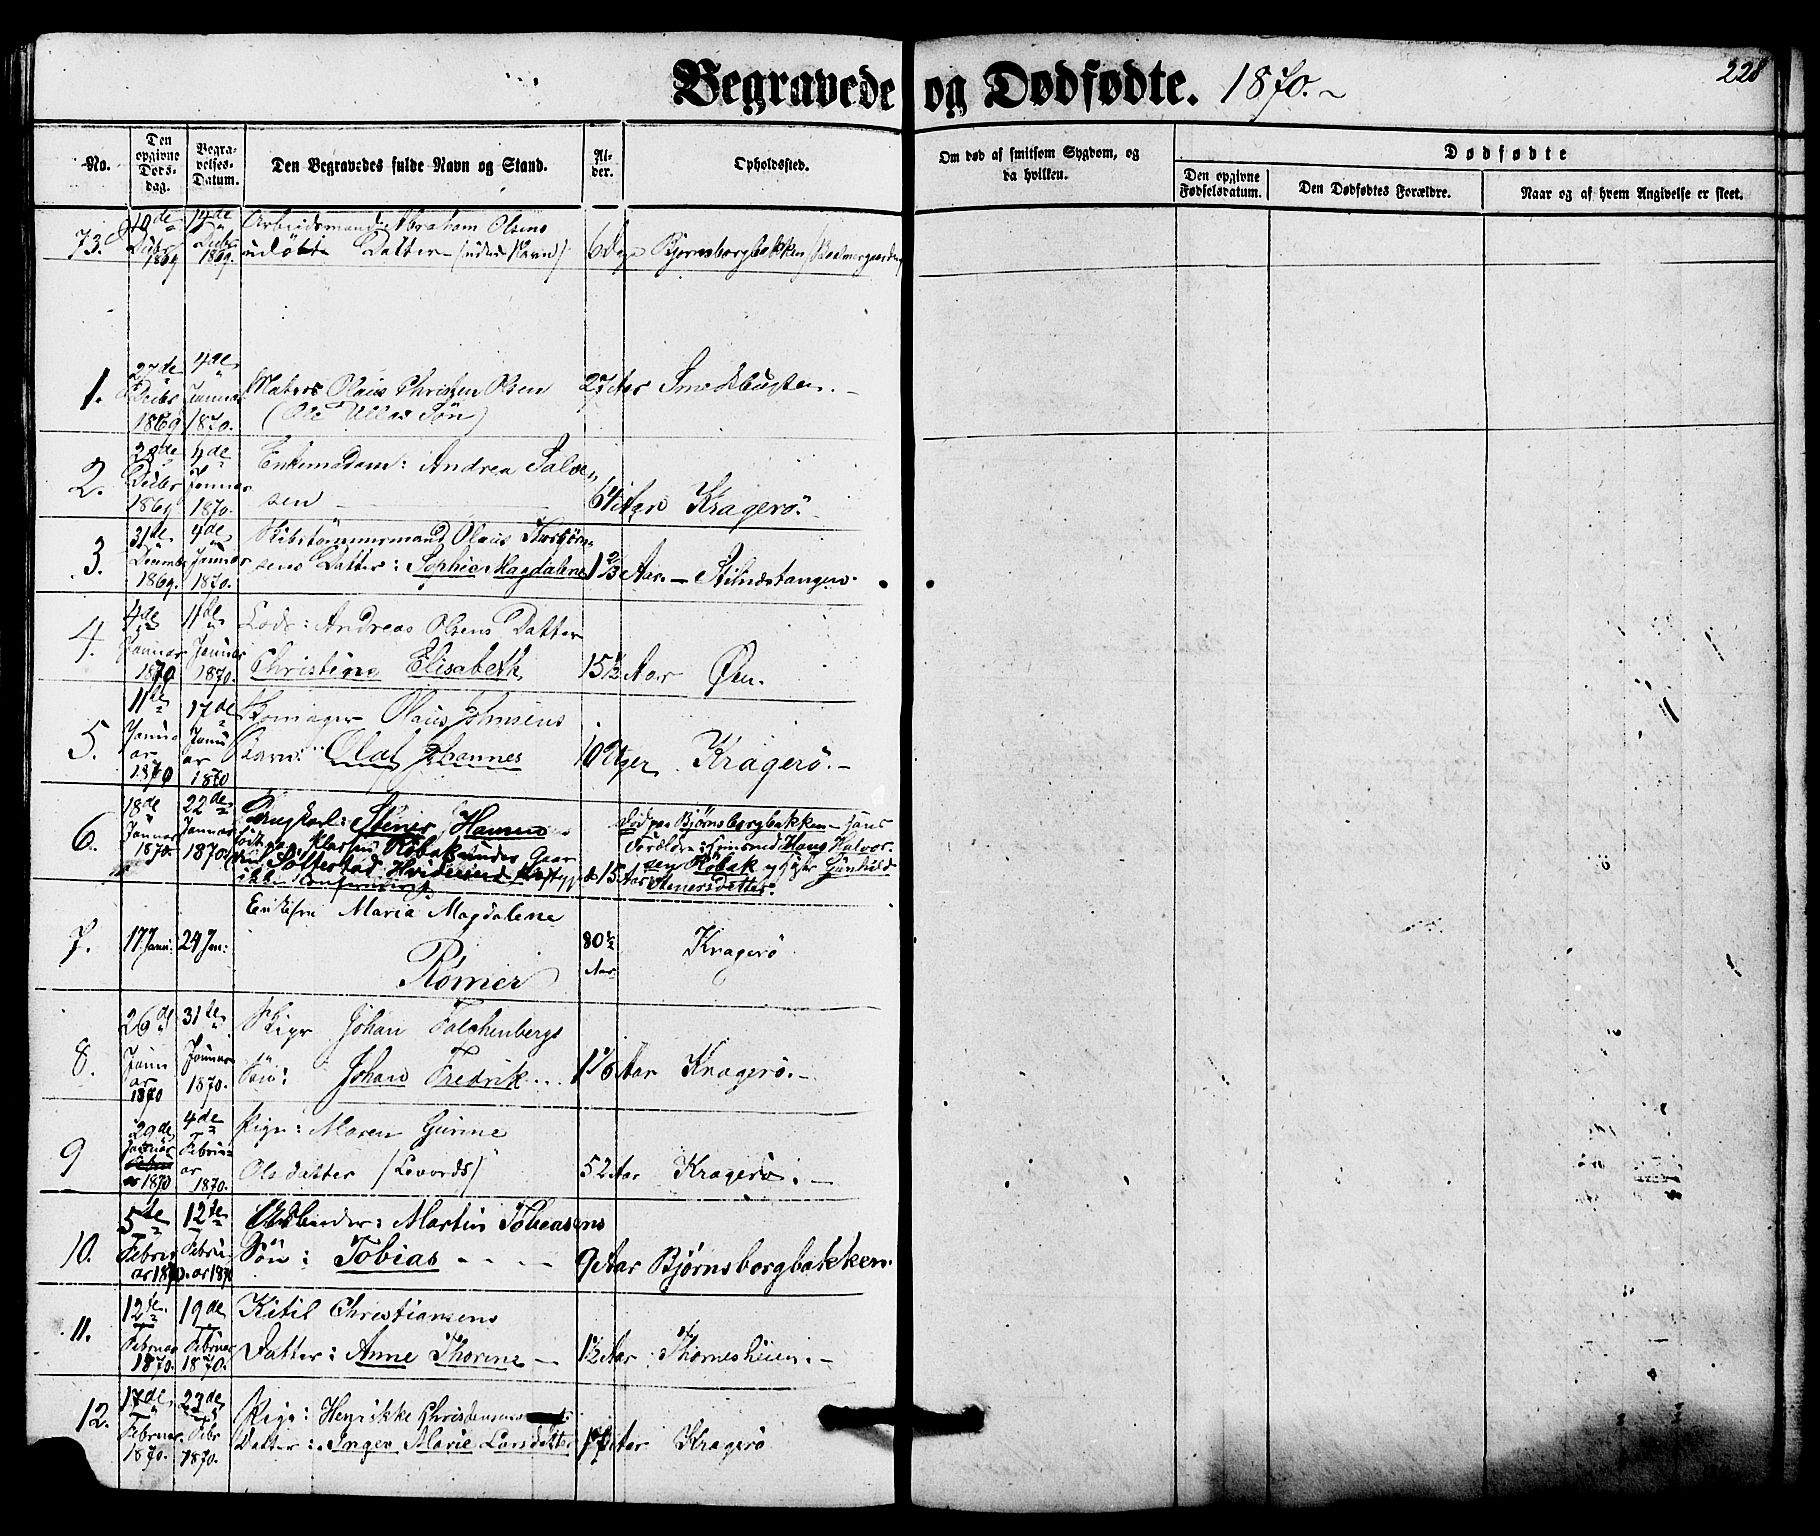 Begravede og Dødfødte. 1870.
228
No.
Den opgivne Dødsdag.
Begravelses-Datum.
Den Begravedes fulde Navn og Stand.
Alder.
Opholdssted.
Om død af smitsom Sygdom, og da hvilken.
Dødfødte
Den opgivne Fødselsdatum.
Den Dødfødtes Forældre.
Naar og af hvem Angivelse er skeet.
73. 10de Decbr 1869 14de Decbr 1869. Arbeidsmand Abraham Olsens
udöbte Datter (uden Navn) 6 Dage Bjørnsborgbakken
1. 27de Decbr 1869 4de Januar 1870. Matros Olaus Christen Olsen
(Ole Ullas Sön) 27 Aar
2. 28de Decbr 1869 4de Januar 1870. Enkemadam: Andrea Salve-
sen 64 Aar Kragerö.
3. 31te Decembr 1869. 4de Januar 1870. Skibstömmermand Olaus
sens Datter: Sophie Magdalene 1 2/3 Aar. – Stilnestangen.
4. 4de Januar 1870 11te Januar 1870. Lods: Andreas Olsens Datter
Christine Elisabeth 15 1/2 Aar Øen.
5. 11te Januar 1870 17de Januar 1870 Skomager Olaus Johnsens
Barn: Olaf Johannes 10 Uger Kragerö. –
6. 18de Januar 1870. 22de Januar 1870. Ungkarl: Stener Hansen
født paa Klassen Røbak under Gaar
den Sättestad Hvideseid
ikke Confirmeret 15 Aar
död paa Bjørnsborgbakken – hans
Forældre: Huusmd. Hans Halvor-
sen Röbak og Hustr Gunhild
Stenersdatter.
7. 17 Janu: 24 Jan: Enkefru Maria Magdalene
Römer 80 1/2 Aar Kragerö
8. 26de Januar 1870 31te Januar 1870. Skipr Johan Falchenbergs
Sön: Johan Fredrik 1 1/6 Aar Kragerö. –
9 29de Januar 1870 4de Februar 1870. Pige: Maren Gurine
Olsdatter (Levords) 52 Aar Kragerö. –
10. 5te Februar 1870. 12te Februar 1870 Martin Tobiasens
Sön: Tobias 9 Aar Bjørnsborgbakken.
11. 12te Februar 1870. 19de Februar 1870. Kitil Christiansens
Datter: Anne Thorine – 1 1/2 Aar Thornesheien. –
12. 17de Februar 1870. 23de Febr 1870. Pige: Henrikke Christensens
Datter: Inger Marie Larsdatter Aar Kragerö